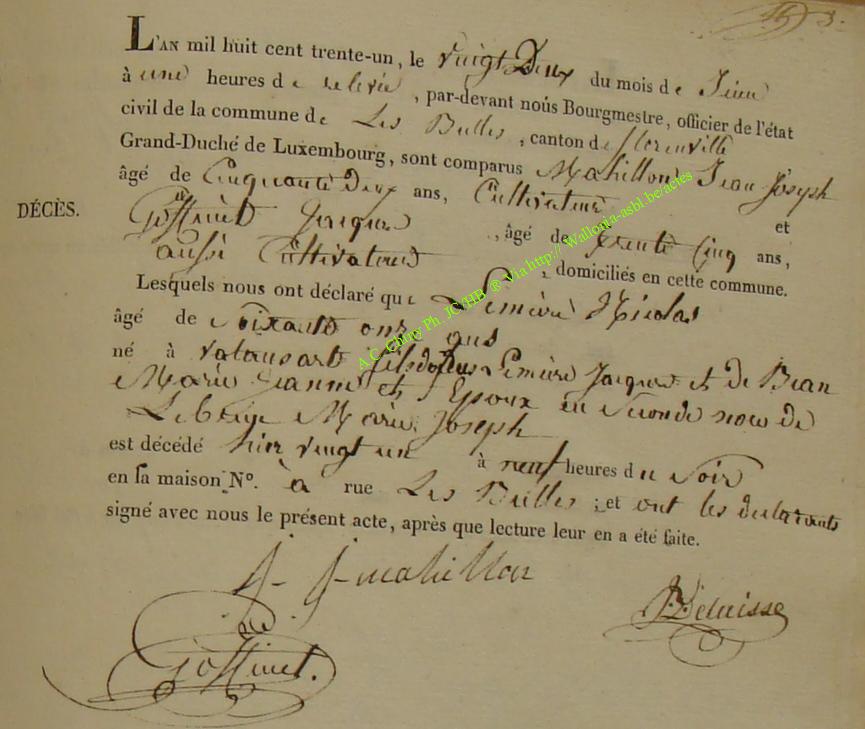 L'AN mil huit cent trente-un, le vingt Deux du mois de Juin
à une heures de relevée, par-devant nous Bourgmestre, officier de l'état
civil de la commune de Les Bulles, canton de florenville
Grand-Duché de Luxembourg, sont comparus Mahillon Jean Joseph
âgé de Cinquante deux ans, Cultivateur et
DÉCÈS.
Goffinet Jacques, âgé de trente Cinq ans,
aussi Cultivateur, domiciliés en cette commune.
Lesquels nous ont déclaré que Lemière Nicolas
âgé de soixante onz ans
né à valansart fils de Lemière Jacques et de Bran
Marie Jeanne et Epoux en seconde noce de
Marie Joseph
est décédé hier vingt un à neuf heures du soir
en sa maison N°. à rue Les Bulles ; et ont les declarants
signé avec nous le présent acte, après que lecture leur en a été faite.
J J mahillon
Goffinet.
A.C. Chiny Ph. JC HB ® Via http:// Wallonia-asbl.be/actes